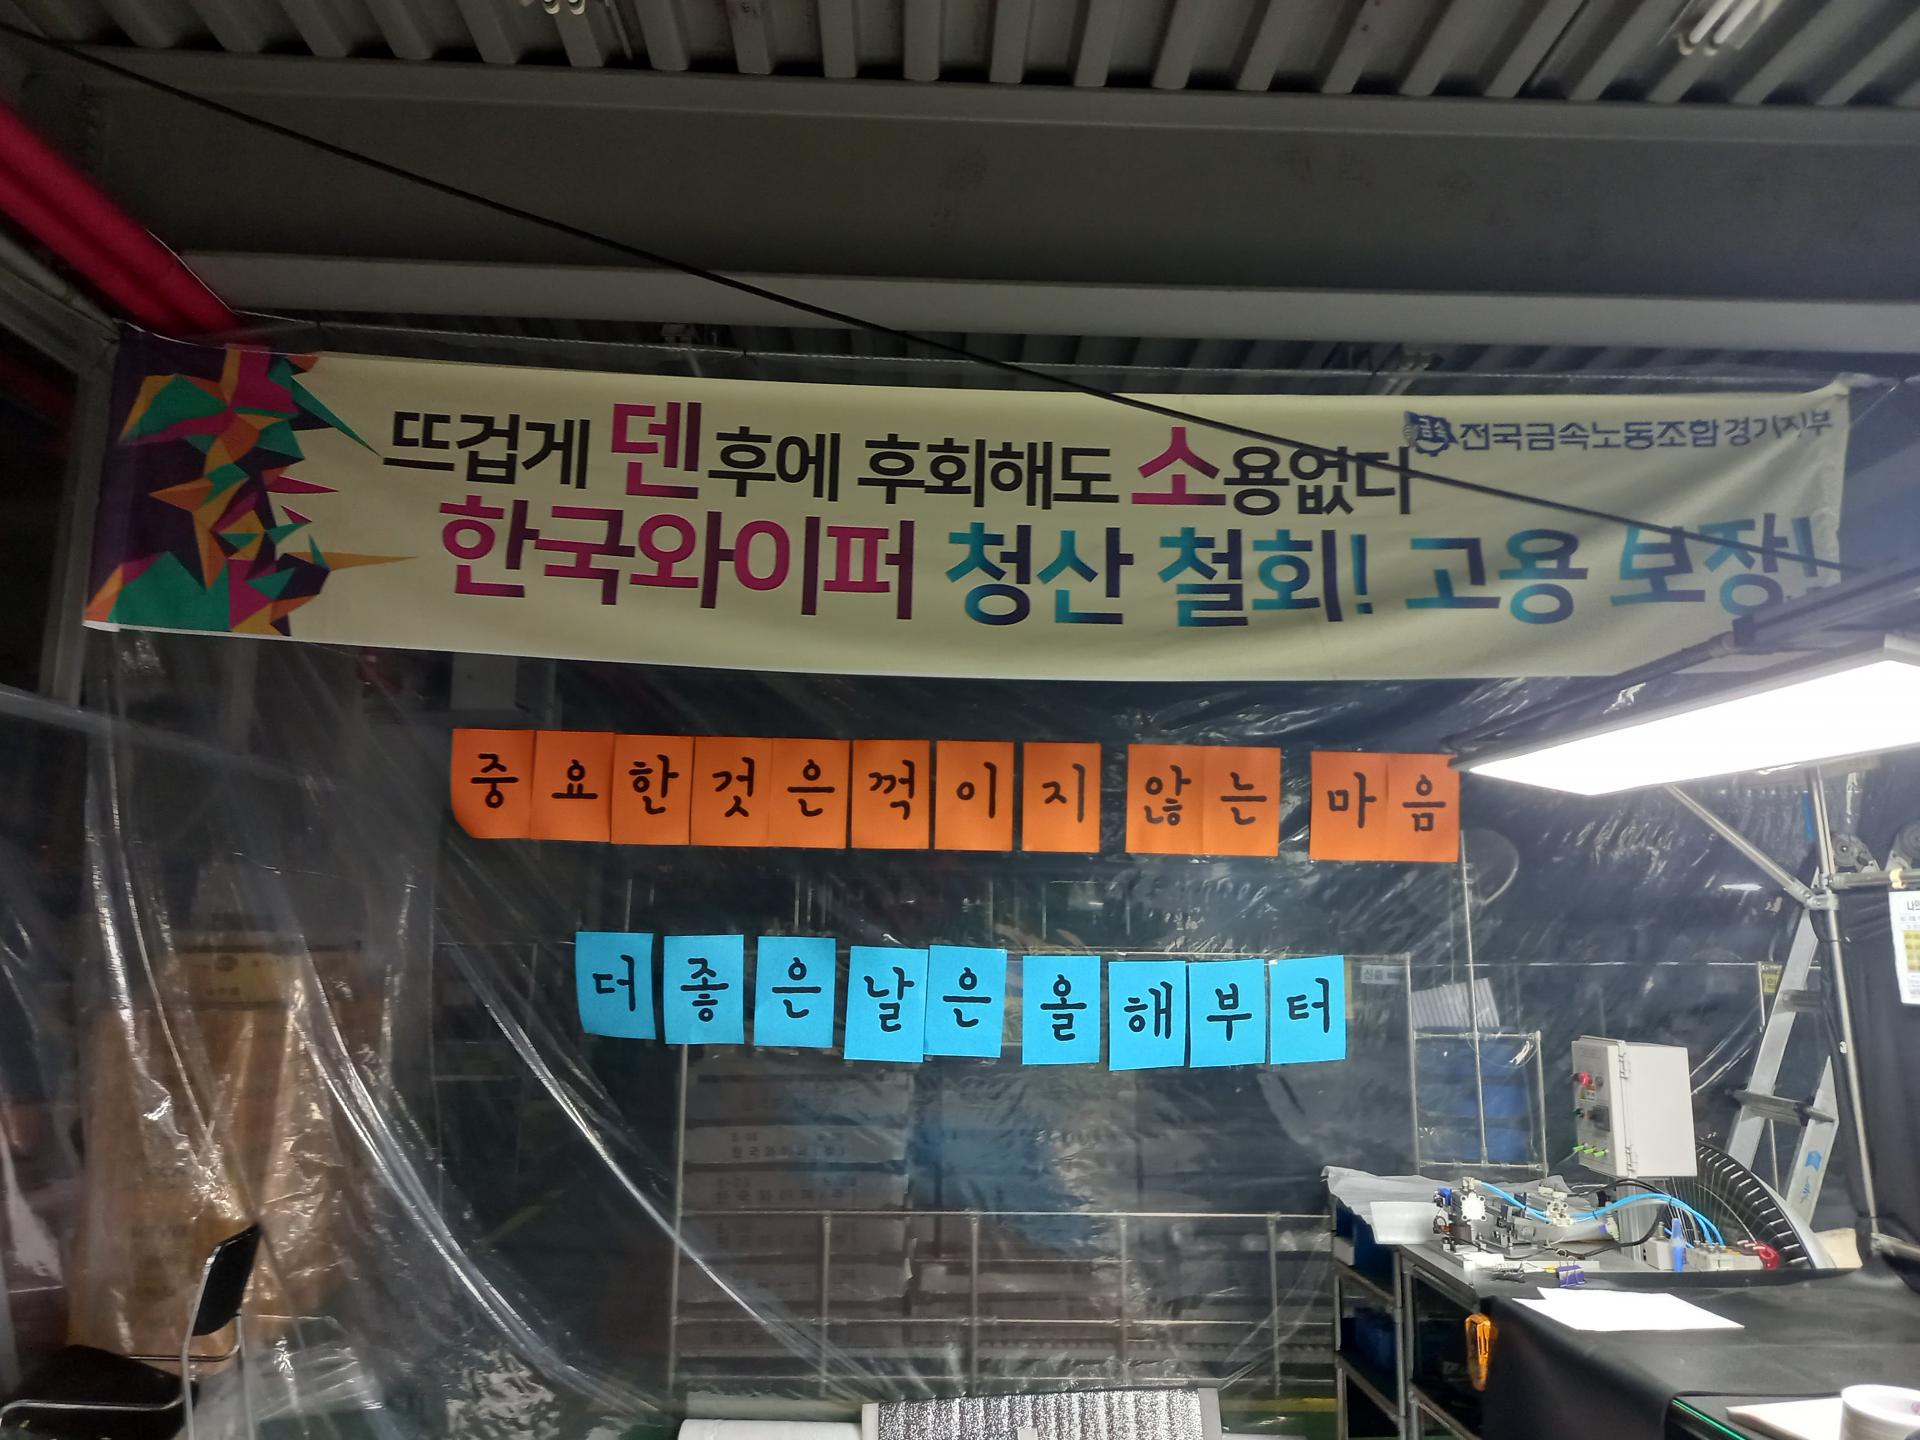 뜨겁게 덴 후에 후회해도 소용없다
금속 전국금속노동조합 경기지부
한국와이퍼 청산 철회! 고용 보장!
중요한것은꺽이지 않는 마음
더 좋은 날은 올해부터